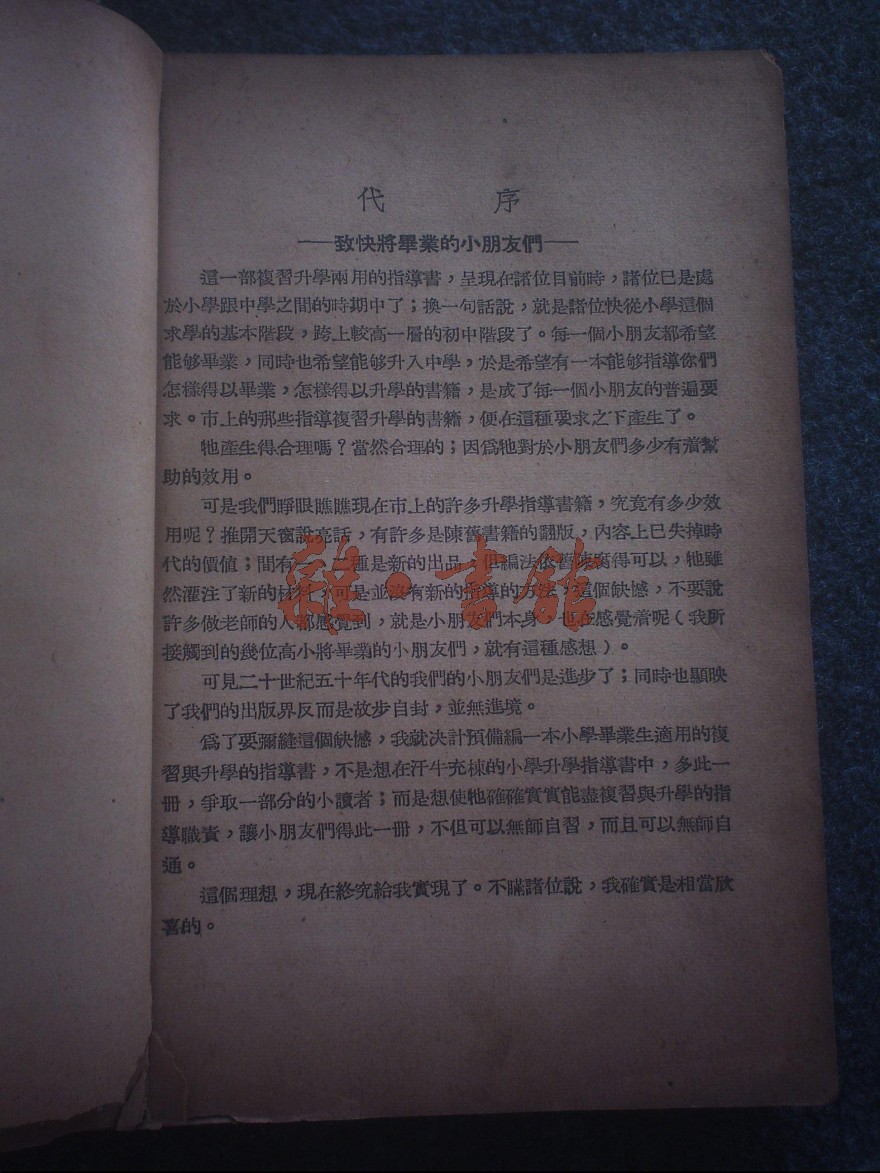 代 序
——致快將畢業的小朋友們——
這一部複習升學兩用的指導書，呈現在諸位目前時，諸位已是處
於小學跟中學之間的時期中了；換一句話說，就是諸位快從小學這個
求學的基本階段，跨上較高一層的初中階段了。每一個小朋友都希望
能够畢業，同時也希望能够升入中學，於是希望有一本能够指導你們
怎樣得以畢業，怎樣得以升學的書籍，是成了每一個小朋友的普遍要
求。市上的那些指導複習升學的書籍，便在這種要求之下產生了。
牠產生得合理嗎？當然合理的；因爲牠對於小朋友們多少有着幫
助的效用。
可是我們睜眼瞧瞧現在市上的許多升學指導書籍，究竟有多少效
用呢？推開天窗說亮話，有許多是陳舊書籍的翻版，內容上已失掉時
代的價值；間有一、二種是新的出品，但編法依舊陳腐得可以，牠雖
然灌注了新的材料，可是並沒有新的指導的方法，這個缺憾，不要說
許多做老師的人都感覺到，就是小朋友們本身，也在感覺着呢（我所
接觸到的幾位高小將畢業的小朋友們，就有這種感想）。
可見二十世紀五十年代的我們的小朋友們是進步了；同時也顯映
了我們的出版界反而是故步自封，並無進境。
爲了要彌縫這個缺憾，我就決計預備編一本小學畢業生適用的複
習與升學的指導書，不是想在汗牛充棟的小學升學指導書中，多此一
冊，爭取一部分的小讀者；而是想使牠確確實實能盡複習與升學的指
導職責，讓小朋友們得此一冊，不但可以無師自習，而且可以無師自
通。
這個理想，現在終究給我實現了。不瞞諸位說，我確實是相當欣
喜的。
雜·書館